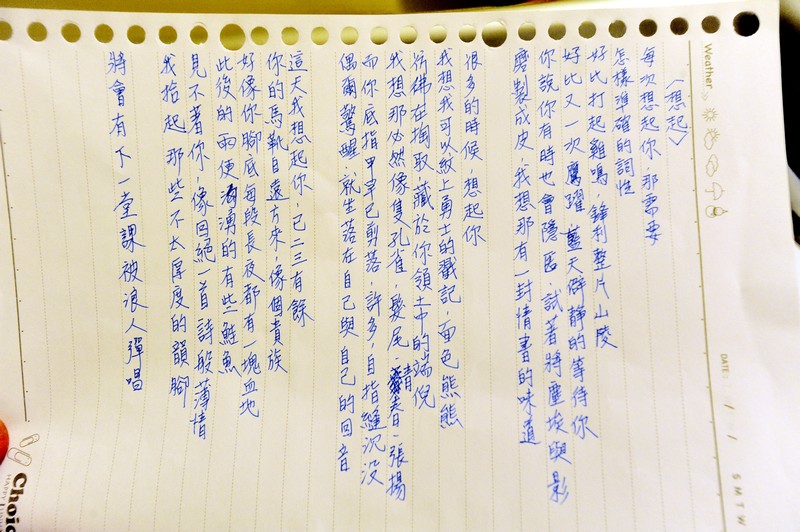 〈想起〉
每次想起你，那需要
怎樣準確的詞性
好比打起雞鳴，鋒利整片山陵
好比又一次鷹躍，藍天僻靜的等待你
你說你有時也會隱匿，試著將塵埃與影
磨製成皮，我想那有一封情書的味道
很多的時候，想起你
我想我可以紋上勇士的戳記，面色熊熊
彷彿在掏取，藏於你領土中的端倪
我想那必然像隻孔雀，髮尾、青春、張揚
而你底指甲早已剪落，許多，自指縫沉沒
偶爾驚醒，就坐落在自己與自己的回音
這天我想起你，已二三有餘
你的馬靴自遠方來，像個貴族
好像你腳底每段長夜都有一塊血地
此後的雨便洶湧的有些鮭魚
見不著你，像回絕一首詩般薄情
我拾起那些不太厚度的韻腳
將會有下一堂課被浪人彈唱
Weather
DATE: / /
S M T W
Choic
HAPPY